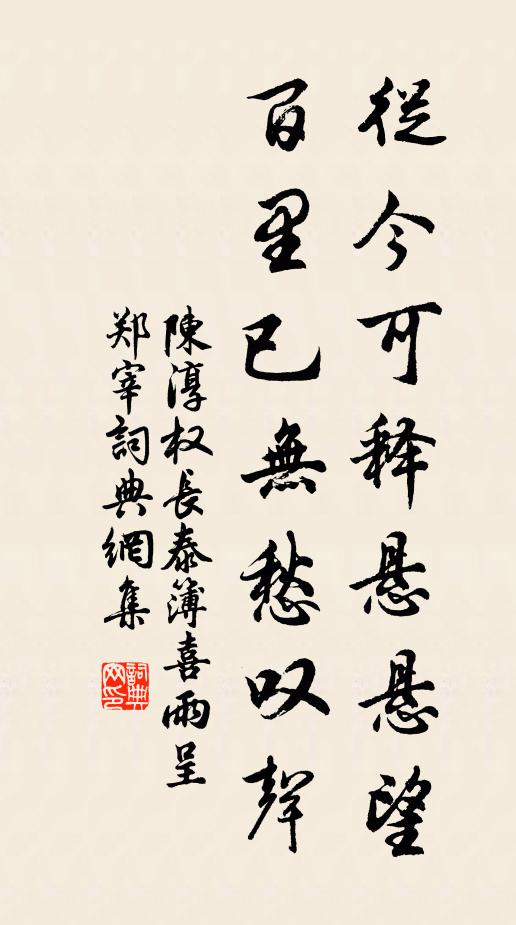 從今可释悬悬望
百里已無愁叹聲
陳淳权長泰簿喜雨呈
郑宰詞典網集
詞典
网印